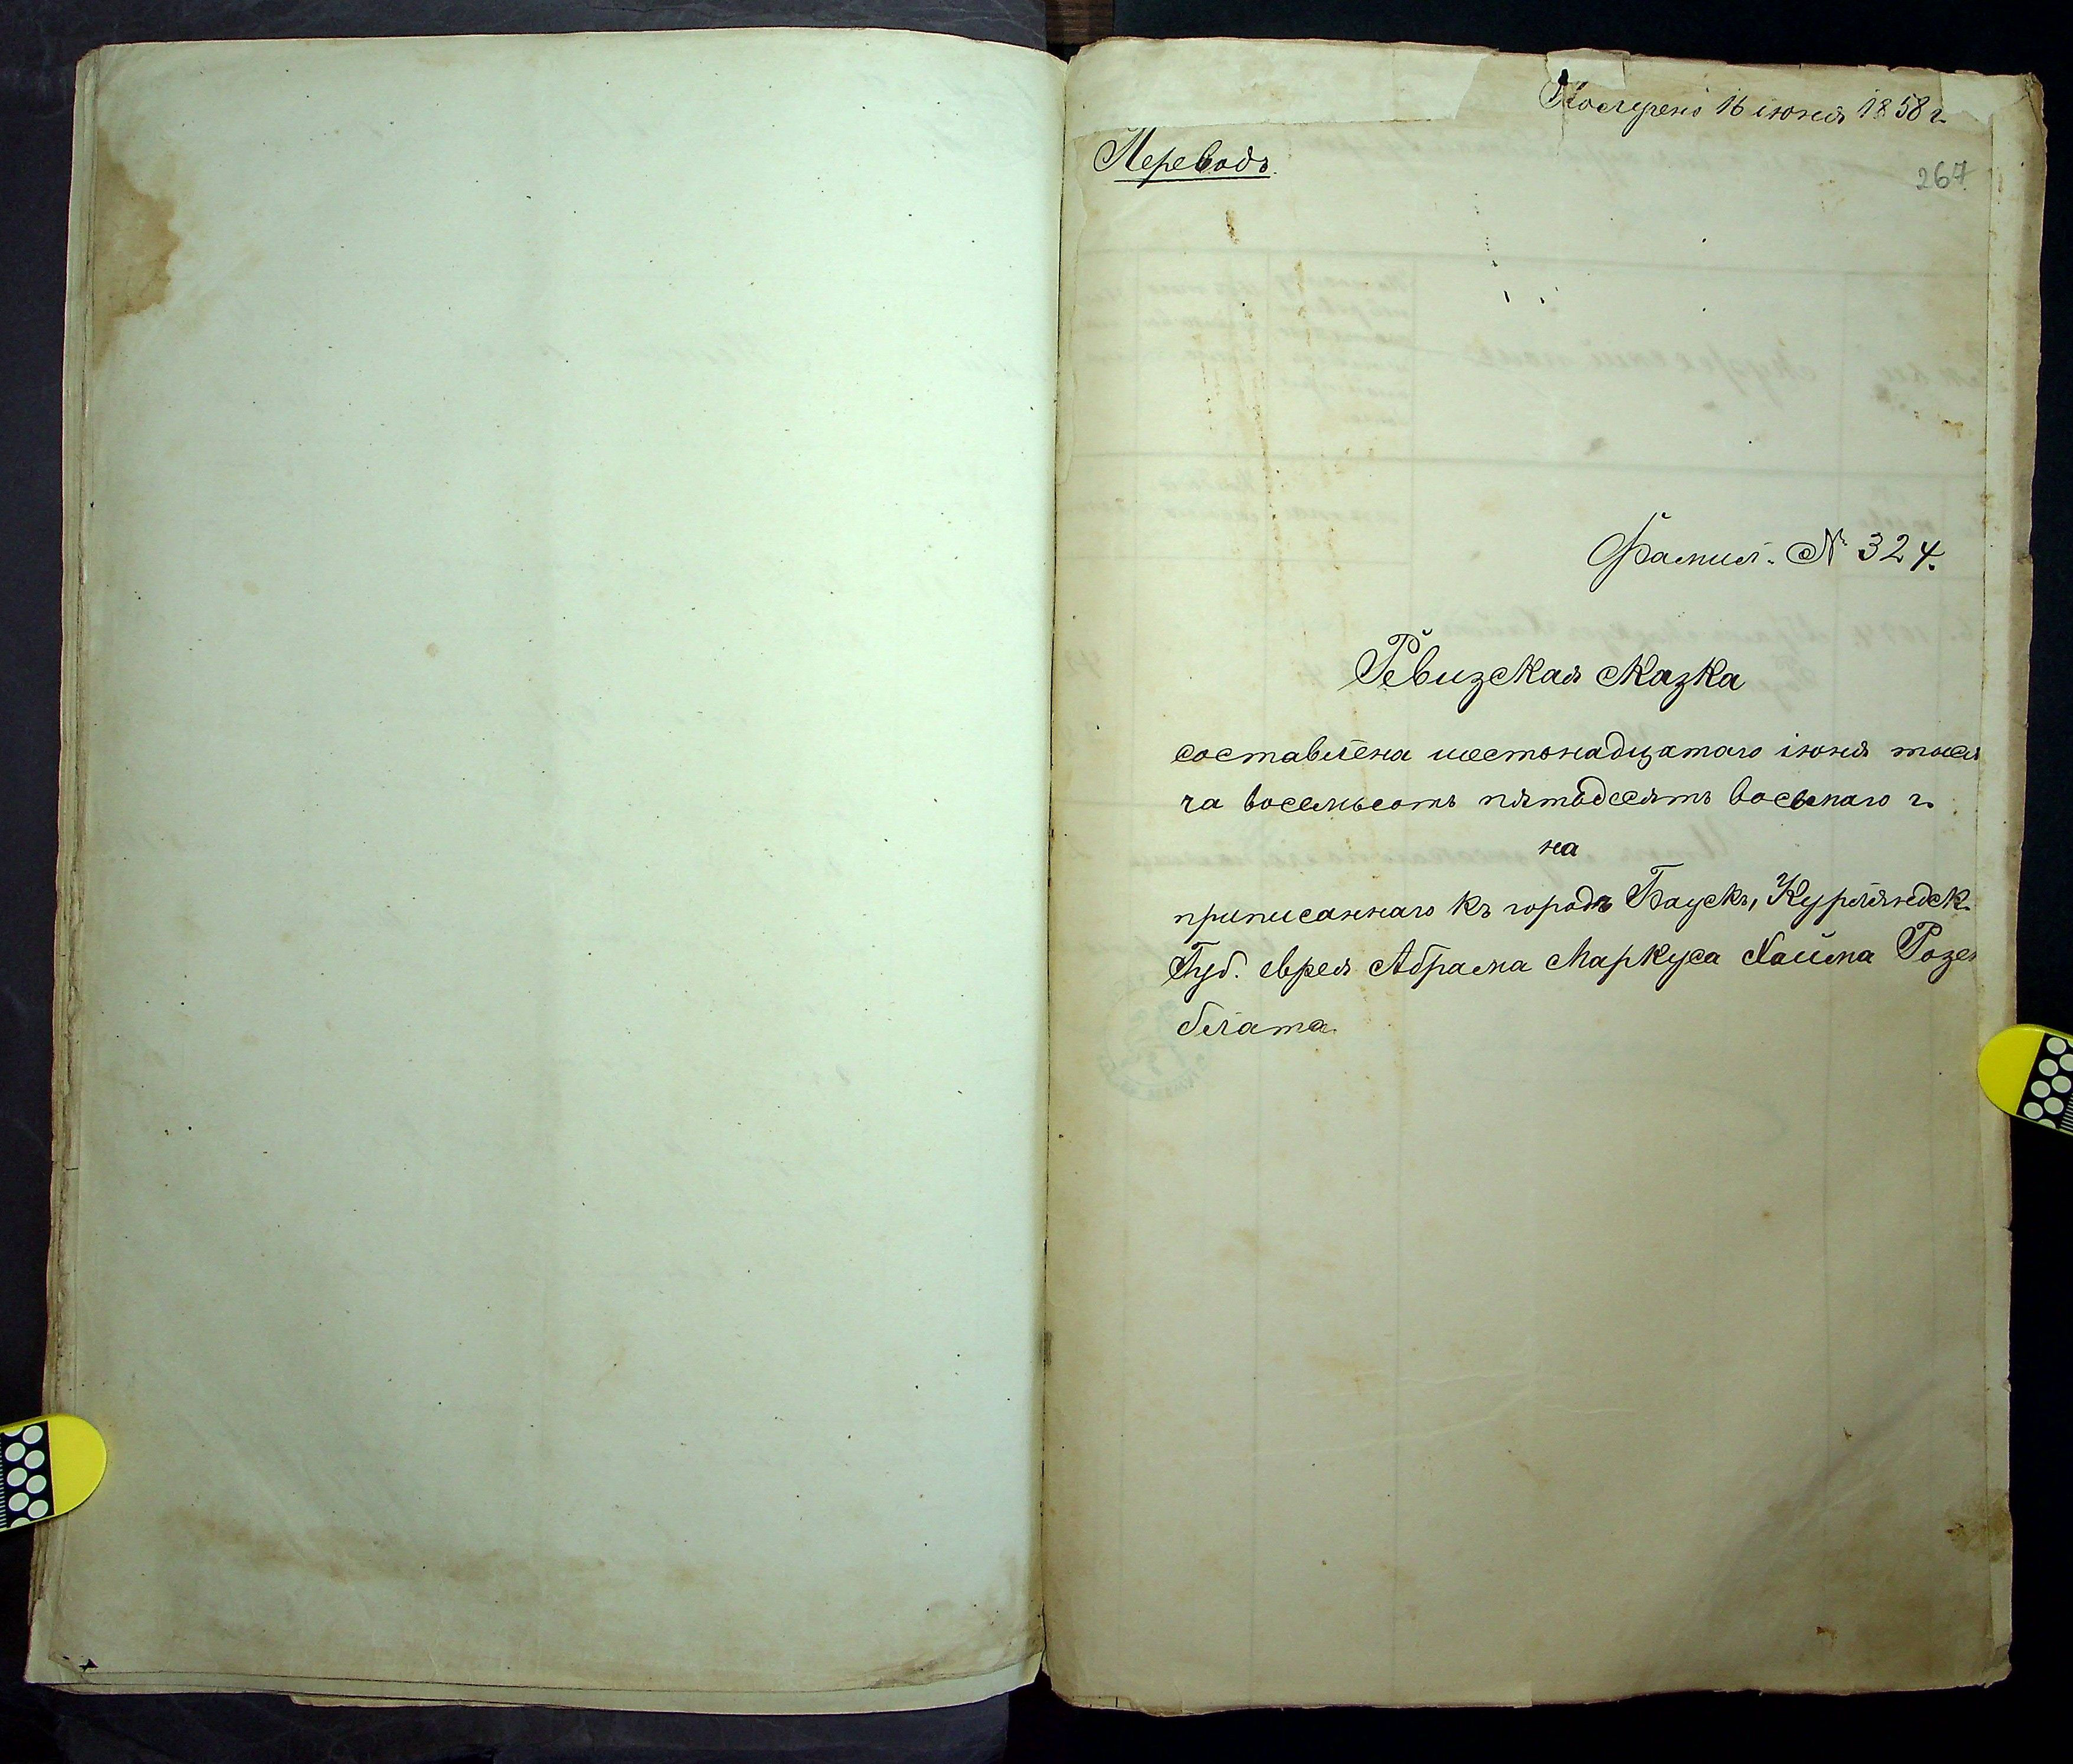 Получено 16 іюня 1858 г.
Переводъ.
267
Фамил. № 324.
Ревизская сказка
составлена шестонадцатаго іюня тыся
ча восемьсотъ пятьдесятъ восьмаго г.
на
приписаннаго къ городу Баускъ, Курляндск.
Губ. еврея Абрама Маркуса Хаима Розен
блата